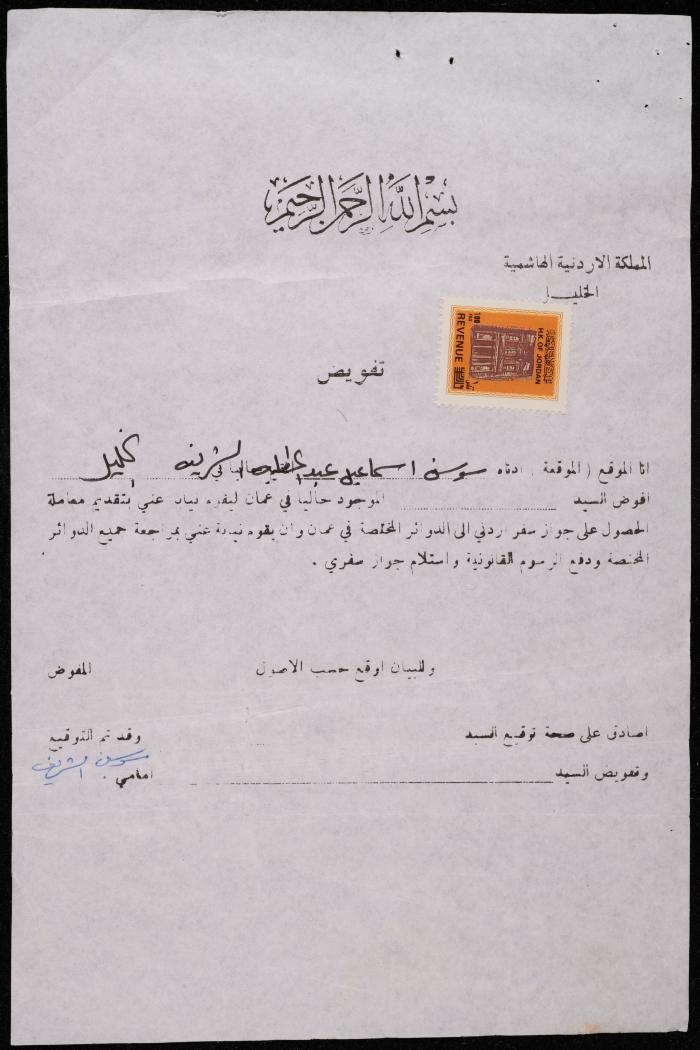 بسم الله الرحمن الرحيم
المملكة الاردنية الهاشمية
الخليل
H.K.OF JORDAN
REVENUE
100
تفويض
انا الموقع ( الموقعة ) ادناه سوسن اسماعيل عبد الحفيظ الشريف حاليا في الخليل
افوض السيد الموجود حاليا في عمان ليقوم نيابة عني بتقديم معاملة
الحصول على جواز سفر اردني الى الدوائر المختصة في عمان وان يقوم نيابة عني بمراجعة جميع الدوائر
المختصة ودفع الرسوم القانونية واستلام جواز سفري .
وللبيان اوقع حسب الاصول المفوض
اصادق على صحة توقيع السيد وقد تم التوقيع
وتفويض السيد امامي .
سوسن الشريف